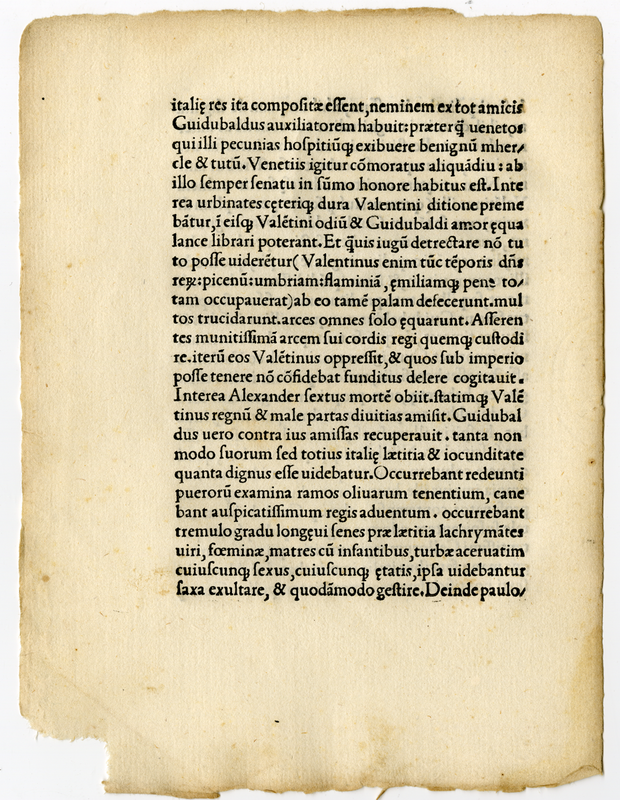 italię res ita compoſitæ eſſent,neminem ex tot amicis
Guidubaldus auxiliatorem habuit:præterq̃ uenetos
qui illi pecunias hoſpitiūq; exibuere benignū mher/
cle & tutū.Venetiis igitur cōmoratus aliquādiu: ab
illo ſemper ſenatu in ſūmo honore habitus eſt.Inte
rea urbinates cęteriq; dura Valentini ditione preme
bātur,ī eiſq; Valētini odiū & Guidubaldi amor ęqua
lance librari poterant.Et q̃uis iugū detrectare nō tu
to poſſe uiderētur( Valentinus enim tūc tēporis dn̄s
reꝝ:picenū:umbriam:flaminiā,ęmiliamq; pene to/
tam occupauerat)ab eo tamē palam defecerunt.mul
tos trucidarunt.arces omnes ſolo ęquarunt.Aſſeren
tes munitiſſimā arcem ſui cordis regi quemq; cuſtodi
re.iterū eos Valētinus oppreſſit,& quos ſub imperio
poſſe tenere nō cōfidebat funditus delere cogitauit.
Interea Alexander ſextus mortē obiit.ſtatimq; Valē
tinus regnū & male partas diuitias amiſit.Guidubal
dus uero contra ius amiſſas recuperauit.tanta non
modo ſuorum ſed totius italię lætitia & iocunditate
quanta dignus eſſe uidebatur.Occurrebant redeunti
puerorū examina ramos oliuarum tenentium, cane
bant auſpicatiſſimum regis aduentum. occurrebant
tremulo gradu longęui ſenes præ lætitia lachrymātes
uiri, fœminæ,matres cū infantibus,turbæ aceruatim
cuiuſcunq; ſexus,cuiuſcunq; ętatis,ipſa uidebantur
ſaxa exultare, & quodāmodo geſtire.Deinde paulo/